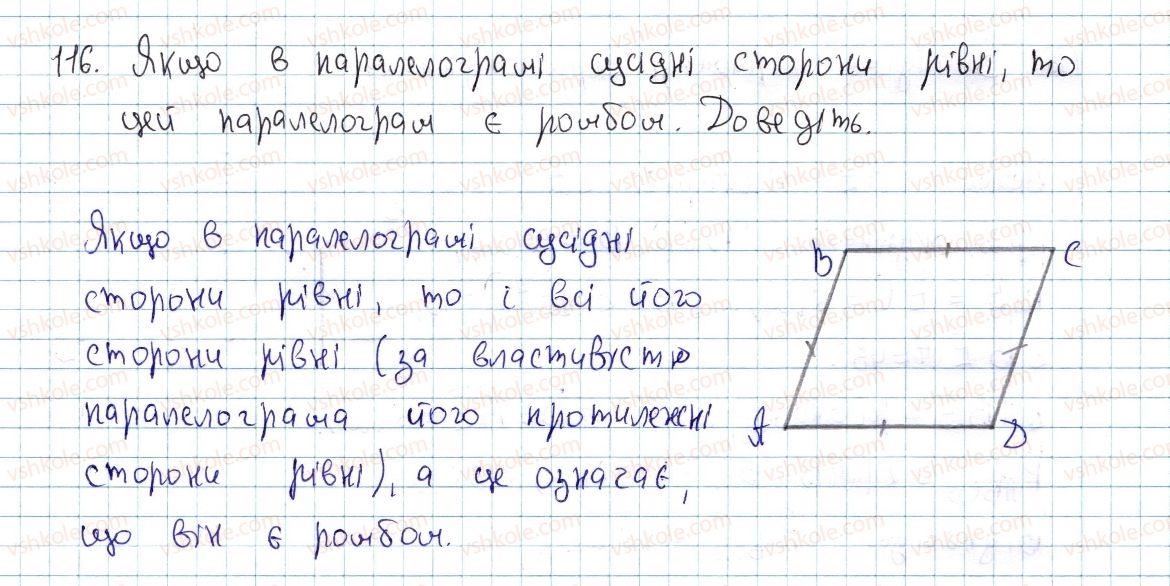 116. Якщо в паралелограмі сусідні сторони рівні, то
цей паралелограм є ромбом. Доведіть.
Якщо в паралелограмі сусідні
сторони рівні, то і всі його
сторони рівні (за властивістю
паралелограма його протилежні
сторони рівні), а це означає,
що він є ромбом.
B C
A D